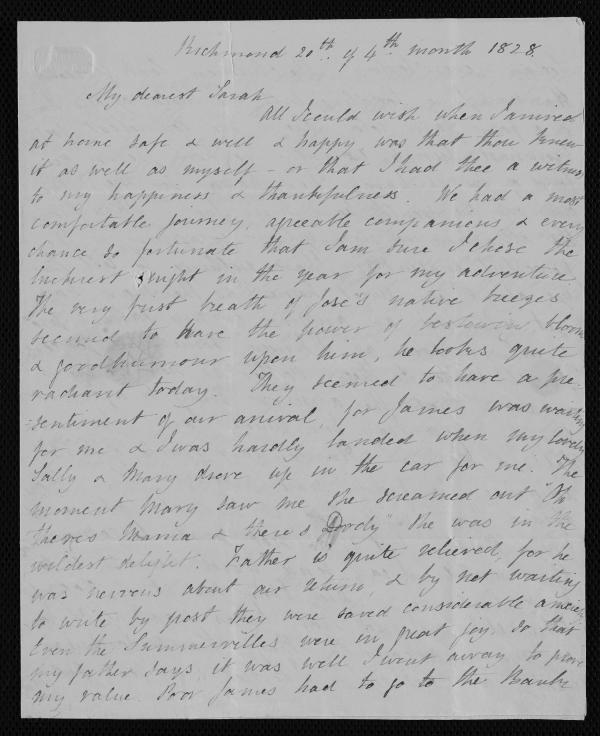 Richmond 20th of 4th month 1828.
My dearest Sarah
All I could wish when I arrived
at home safe & well & happy was that thou knew
it as well as myself - or that I had thee a witness
to my happiness & thankfulness. We had a most
comfortable journey, agreeable companions & every
chance so fortunate that I am sure I chose the
luckiest night in the year for my adventure.
The very first breath of Jose's native breezes
seemed to have the power of bestowing bloom
& goodhumour upon him, he looks quite
radiant today. They seemed to have a pre-
=sentiment of our arrival, for James was waiting
for me & I was hardly landed when my lovely
Sally & Mary drove up in the car for me. The
moment Mary saw me she screamed out "Oh
theres Mama & theres Dody" she was in the
wildest delight. Father is quite relieved, for he
was nervous about our return, & by not waiting
to write by post they were saved considerable anxiety
Even the Summervilles were in great joy so that
my father says it was well I went away to prove
my value. Poor James had to go to the Bank